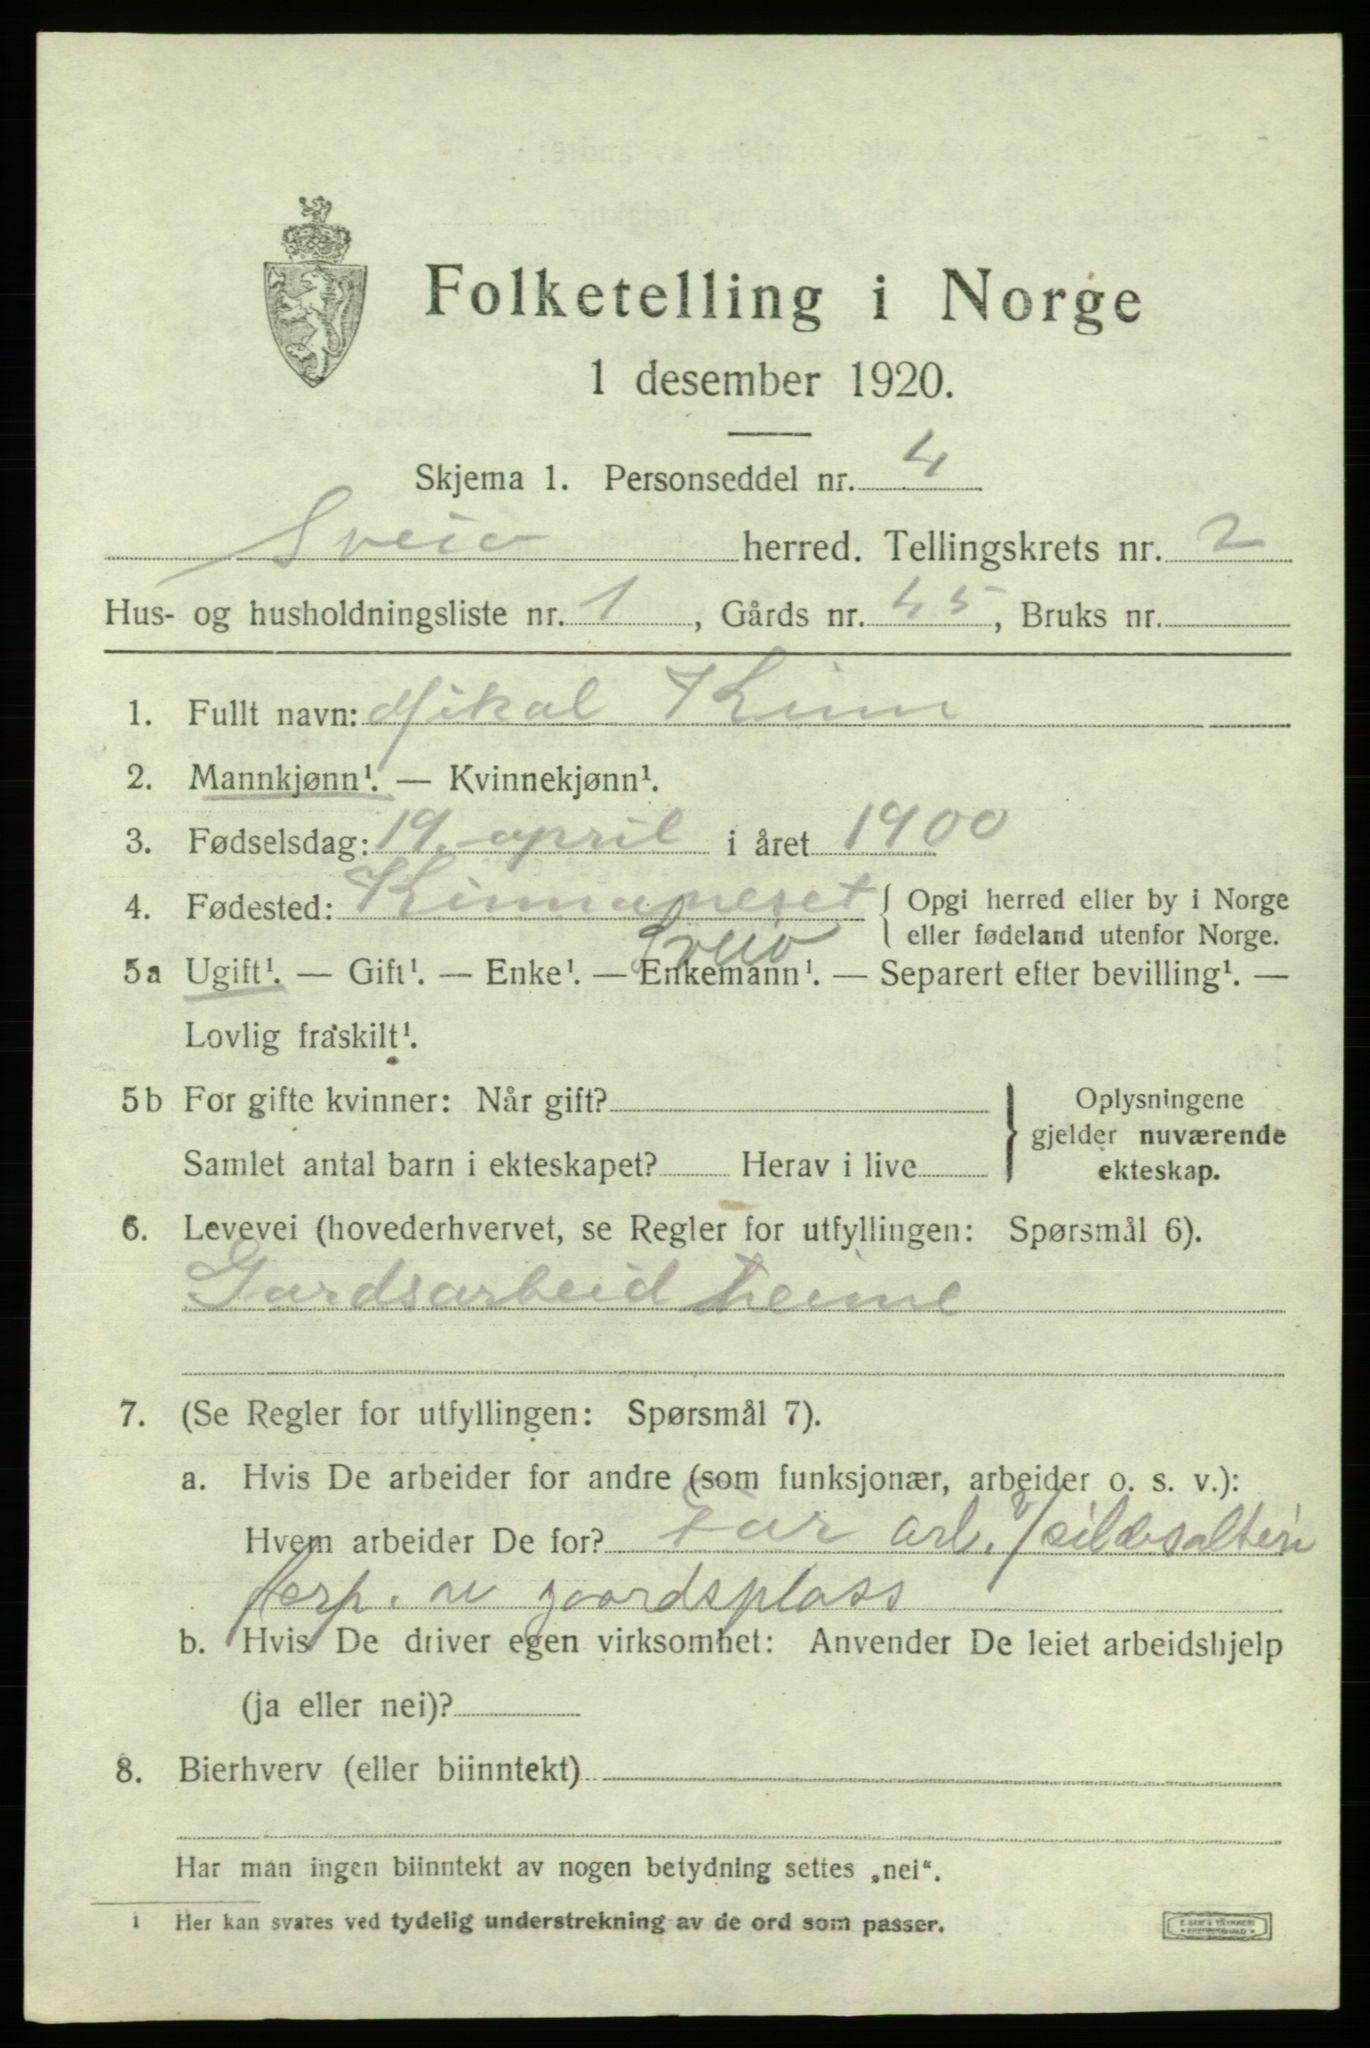 Folketelling i Norge
1 desember 1920.
Skjema 1. Personseddel nr. 4
Sveio herred. Tellingskrets nr. 2
Hus- og husholdningsliste nr. 1, Gårds nr. 45, Bruks nr.
1. Fullt navn: Mikal Kinn
2. Mannkjønn¹. — Kvinnekjønn¹.
3. Fødselsdag: 19. april i året 1900
4. Fødested: Kinnaneset { Opgi herred eller by i Norge
Sveio eller fødeland utenfor Norge.
5a Ugift¹. — Gift¹. — Enke¹. — Enkemann¹. — Separert efter bevilling¹. —
Lovlig fraskilt¹.
5b For gifte kvinner: Når gift? } Oplysningene
gjelder nuværende
Samlet antal barn i ekteskapet? Herav i live
ekteskap.
6. Levevei (hovederhvervet, se Regler for utfyllingen: Spørsmål 6).
Gardsarbeid heime
7. (Se Regler for utfyllingen: Spørsmål 7).
a. Hvis De arbeider for andre (som funksjonær, arbeider o. s. v.):
Hvem arbeider De for? Far arb. / sildesalteri
forp. av gaardsplass
b. Hvis De driver egen virksomhet: Anvender De leiet arbeidshjelp
(ja eller nei)?
8. Bierhverv (eller biinntekt)
Har man ingen biinntekt av nogen betydning settes „nei“.
1 Her kan svares ved tydelig understrekning av de ord som passer.